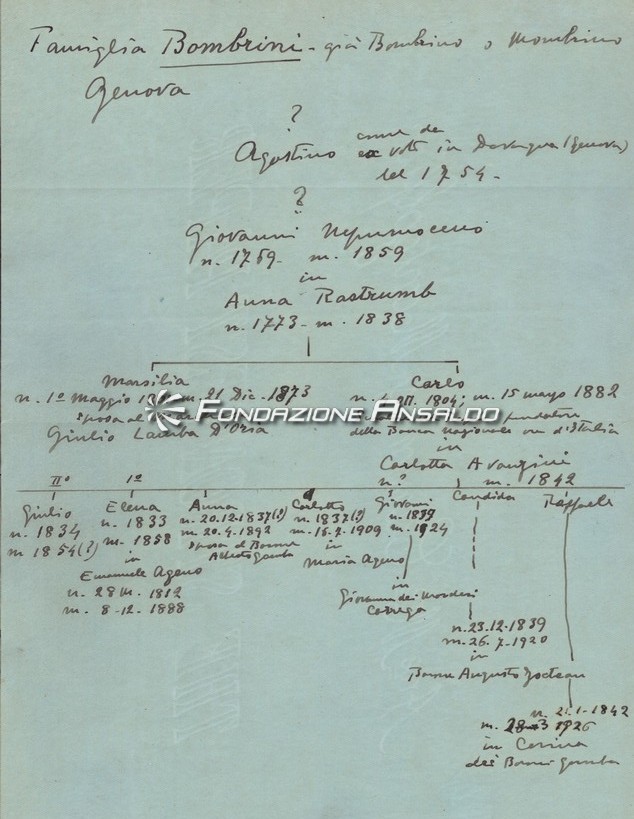 Famiglia Bombrini - già Bombrino o Mombrino
Genova
?
Agostino come da
ex voto in Davagna (Genova)
del 1754.
?
Giovanni Nepumoceno
n. 1769 - m. 1859
in
Anna Rastrumb
n. 1773 - m. 1838
Marsilia
n. 1º Maggio m. 21 Dic. 1873
sposa al
Giulio Lamba D'Oria
Carlo
1804; m. 15 mayo 1882
fondatore
della Banca Nazionale ora d'Italia
in
Carlotta Avanzini
n. ? m. 1842
FONDAZIONE ANSALDO
IIº
Giulio
n. 1834
m 1854(?)
1º
Elena
n. 1833
m. 1858
in
Emanuele Ageno
n. 28 III. 1812
m. 8-12. 1888
Anna
n. 20.12.1837(?)
m. 20.4.1892
sposa al Barone
Alberto Gamba
Carlotto
n. 1837(?)
m. 15.7.1909
in
Maria Ageno
?
Giovanni
n. 1839
m. 1924
in
Giovanna dei Marchesi
Carrega
Candida
n. 23.12.1839
m. 26.7.1920
in
Barone Augusto Jocteau
Raffaele
n. 21.1.1842
m. 1926
in Corinna
dei Baroni Gamba